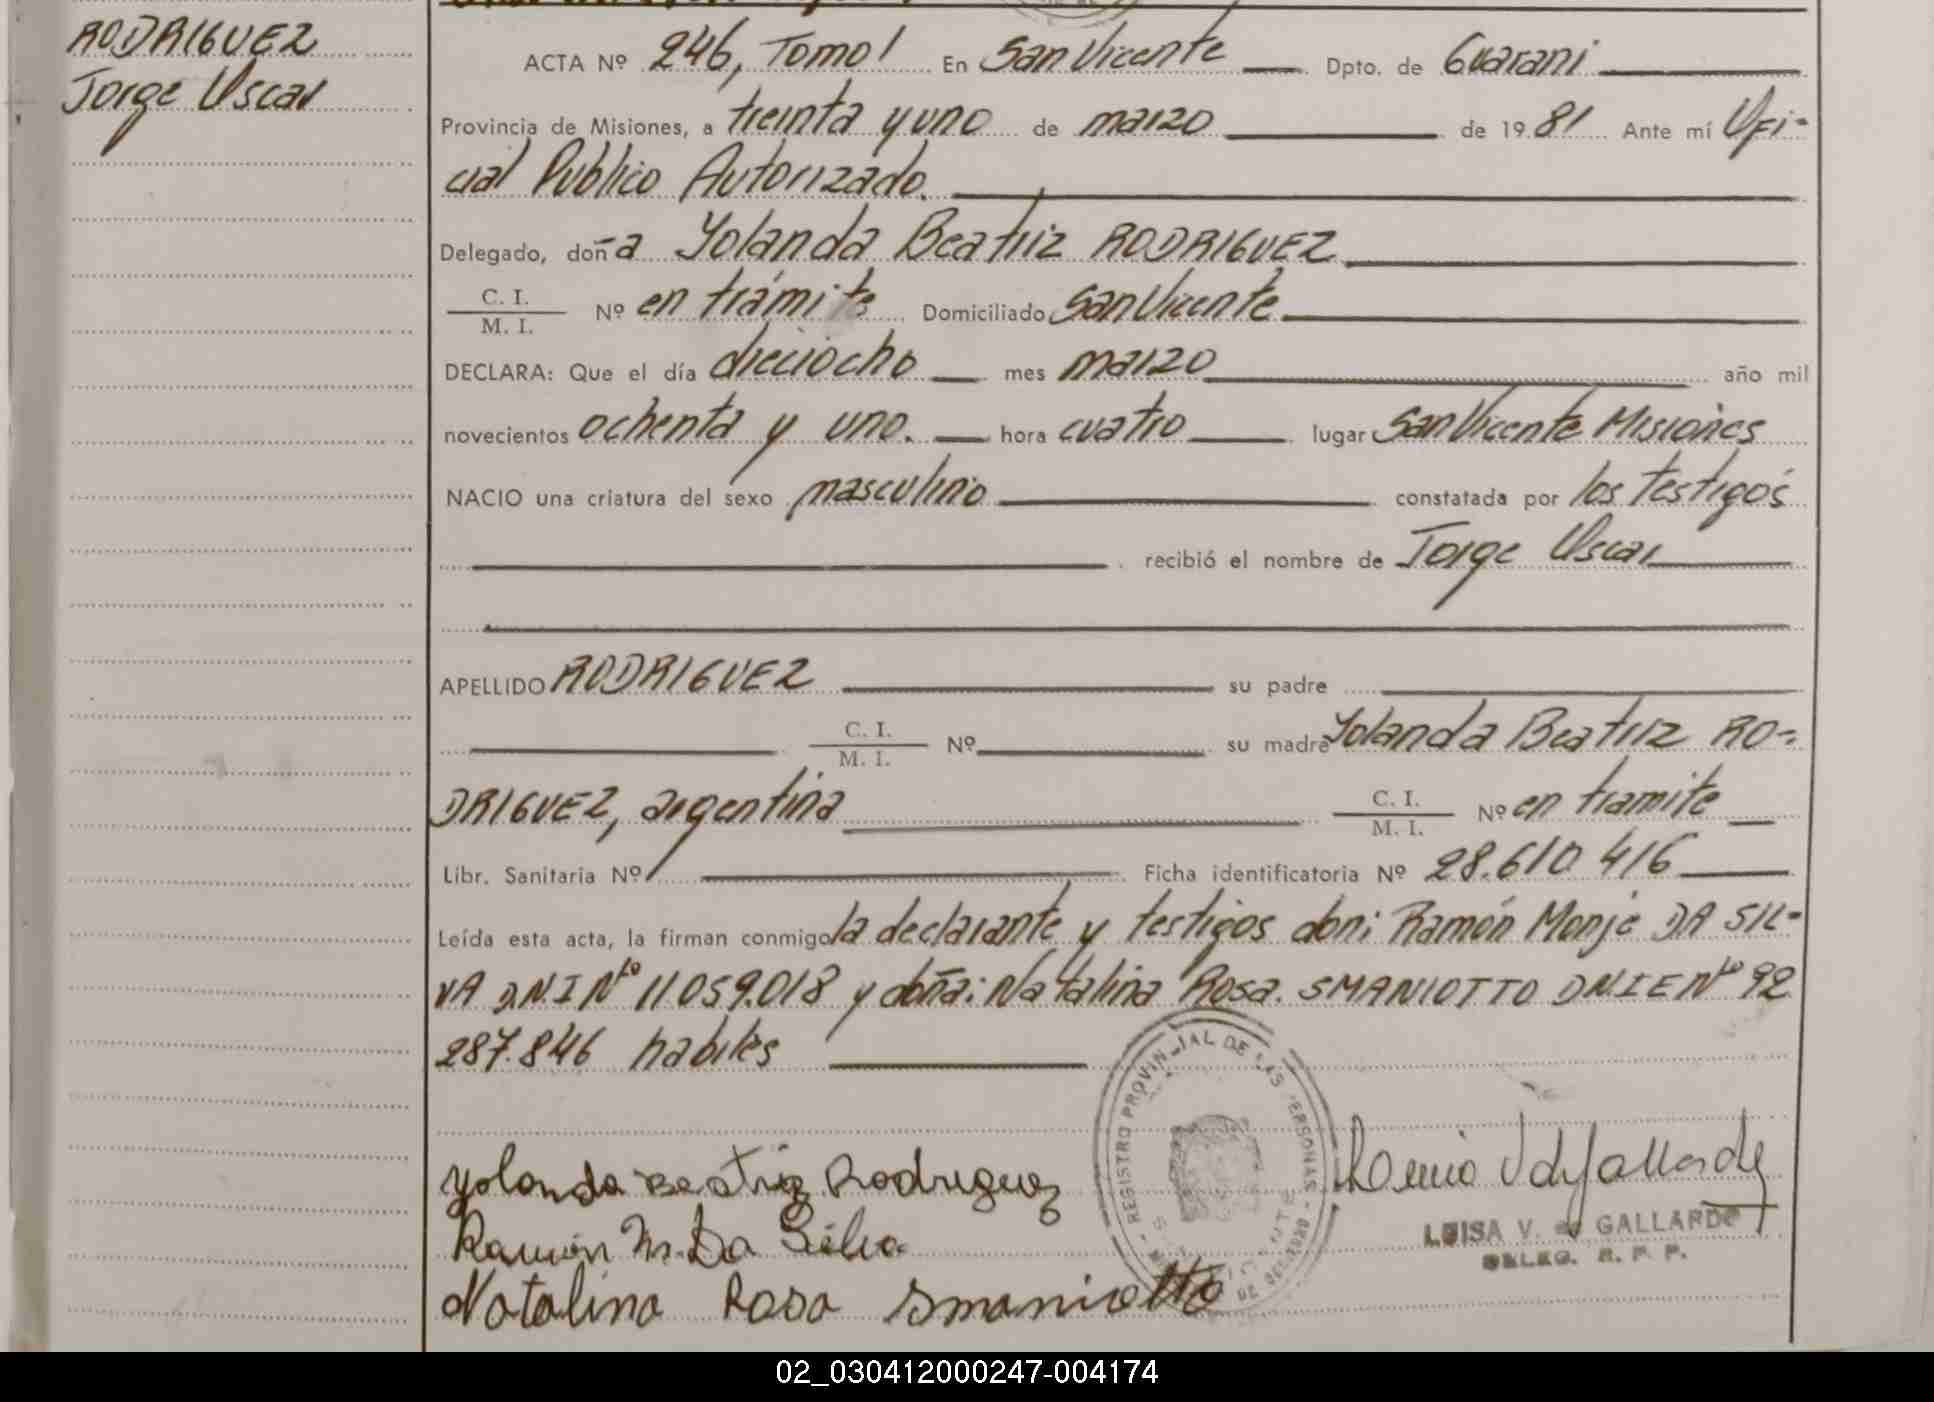 RODRIGUEZ
Jorge Oscar
ACTA Nº 246, Tomo I En San Vicente Dpto. de Guarani
Provincia de Misiones, a treinta y uno de marzo de 1981 Ante mí Ofi-
cial Publico Autorizado.
Delegado, doña Yolanda Beatriz RODRIGUEZ
C. I.
M. I. Nº en trámite Domiciliado San Vicente
DECLARA: Que el día dieciocho mes marzo año mil
novecientos ochenta y uno. hora cuatro lugar San Vicente Misiones
NACIO una criatura del sexo masculino constatada por los testigos
recibió el nombre de Jorge Oscar
APELLIDO RODRIGUEZ su padre
C. I.
M. I. Nº su madre Yolanda Beatriz RO-
DRIGUEZ, argentina C. I.
M. I. Nº en tramite
Libr. Sanitaria Nº Ficha identificatoria Nº 28.610.416
Leída esta acta, la firman conmigo la declarante y testigos don: Ramón Monje DA SIL-
VA D.N.I Nº 11059.018 y doña: Natalina Rosa. SMANIOTTO DNIE Nº 92
287.846 habiles
REGISTRO PROVINCIAL DE LAS PERSONAS
Yolanda Beatriz Rodriguez
Ramón M. Da Silva
Natalina Rosa Smaniotto
LUISA V. de GALLARDO
DELEG. R. P. P.
02_030412000247-004174